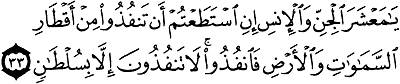 يَـٰمَعْشَرَ ٱلْجِنِّ وَٱلْإِنسِ إِنِ ٱسْتَطَعْتُمْ أَن تَنفُذُوا۟ مِنْ أَقْطَارِ
ٱلسَّمَـٰوَٰتِ وَٱلْأَرْضِ فَٱنفُذُوا۟ ۚ لَا تَنفُذُونَ إِلَّا بِسُلْطَـٰنٍ ٣٣